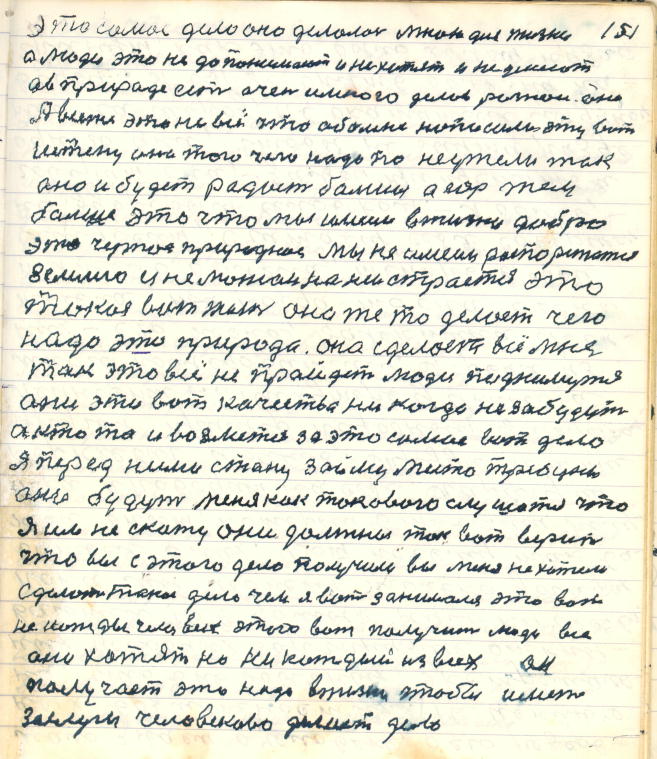 это самое дело оно делолос мною для жизни 151
а люди это не допонимают и нехотят и не делоют
а в природе есть очен много делов
я веть это не всё что обомне нописали эту вот
истену она того чего надо по неужели так
оно и будет радост болши а горя тем
болше это что мы имеем в жизни добро
это чужое природное мы не имеем роспорежатся
землёю и неможем на ней строется это
токоя вот жизн она же то делоет чего
надо это природа. она сделоет всё мне
так это всё не пройдет люди поднимутся
они эти вот качества ни когда незабудут
а кто то и возметса за это самое вот дело
я перед ними стану займу место трибуны
они будут меня как токового слушать что
я им не скажу они должны так вот верит
что вы с этого дело получили вы меня не хотели
сделать токое дело чем я вот занимался это вот
не кажды человек этого вот получит люди все
они хотят но ни каждый из всех он
получает это надо в жизни чтобы иметь
заслуги человеково делоет дело